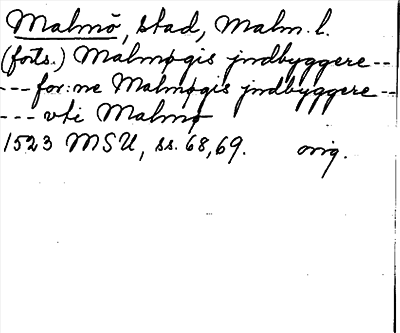 Malmö, stad, Malm. l.
(forts.) Malmøgis jndbyggere --
--- for:ne Malmøgis jndbyggere --
--- vti Malmø
1523 MSU, ss. 68, 69. orig.